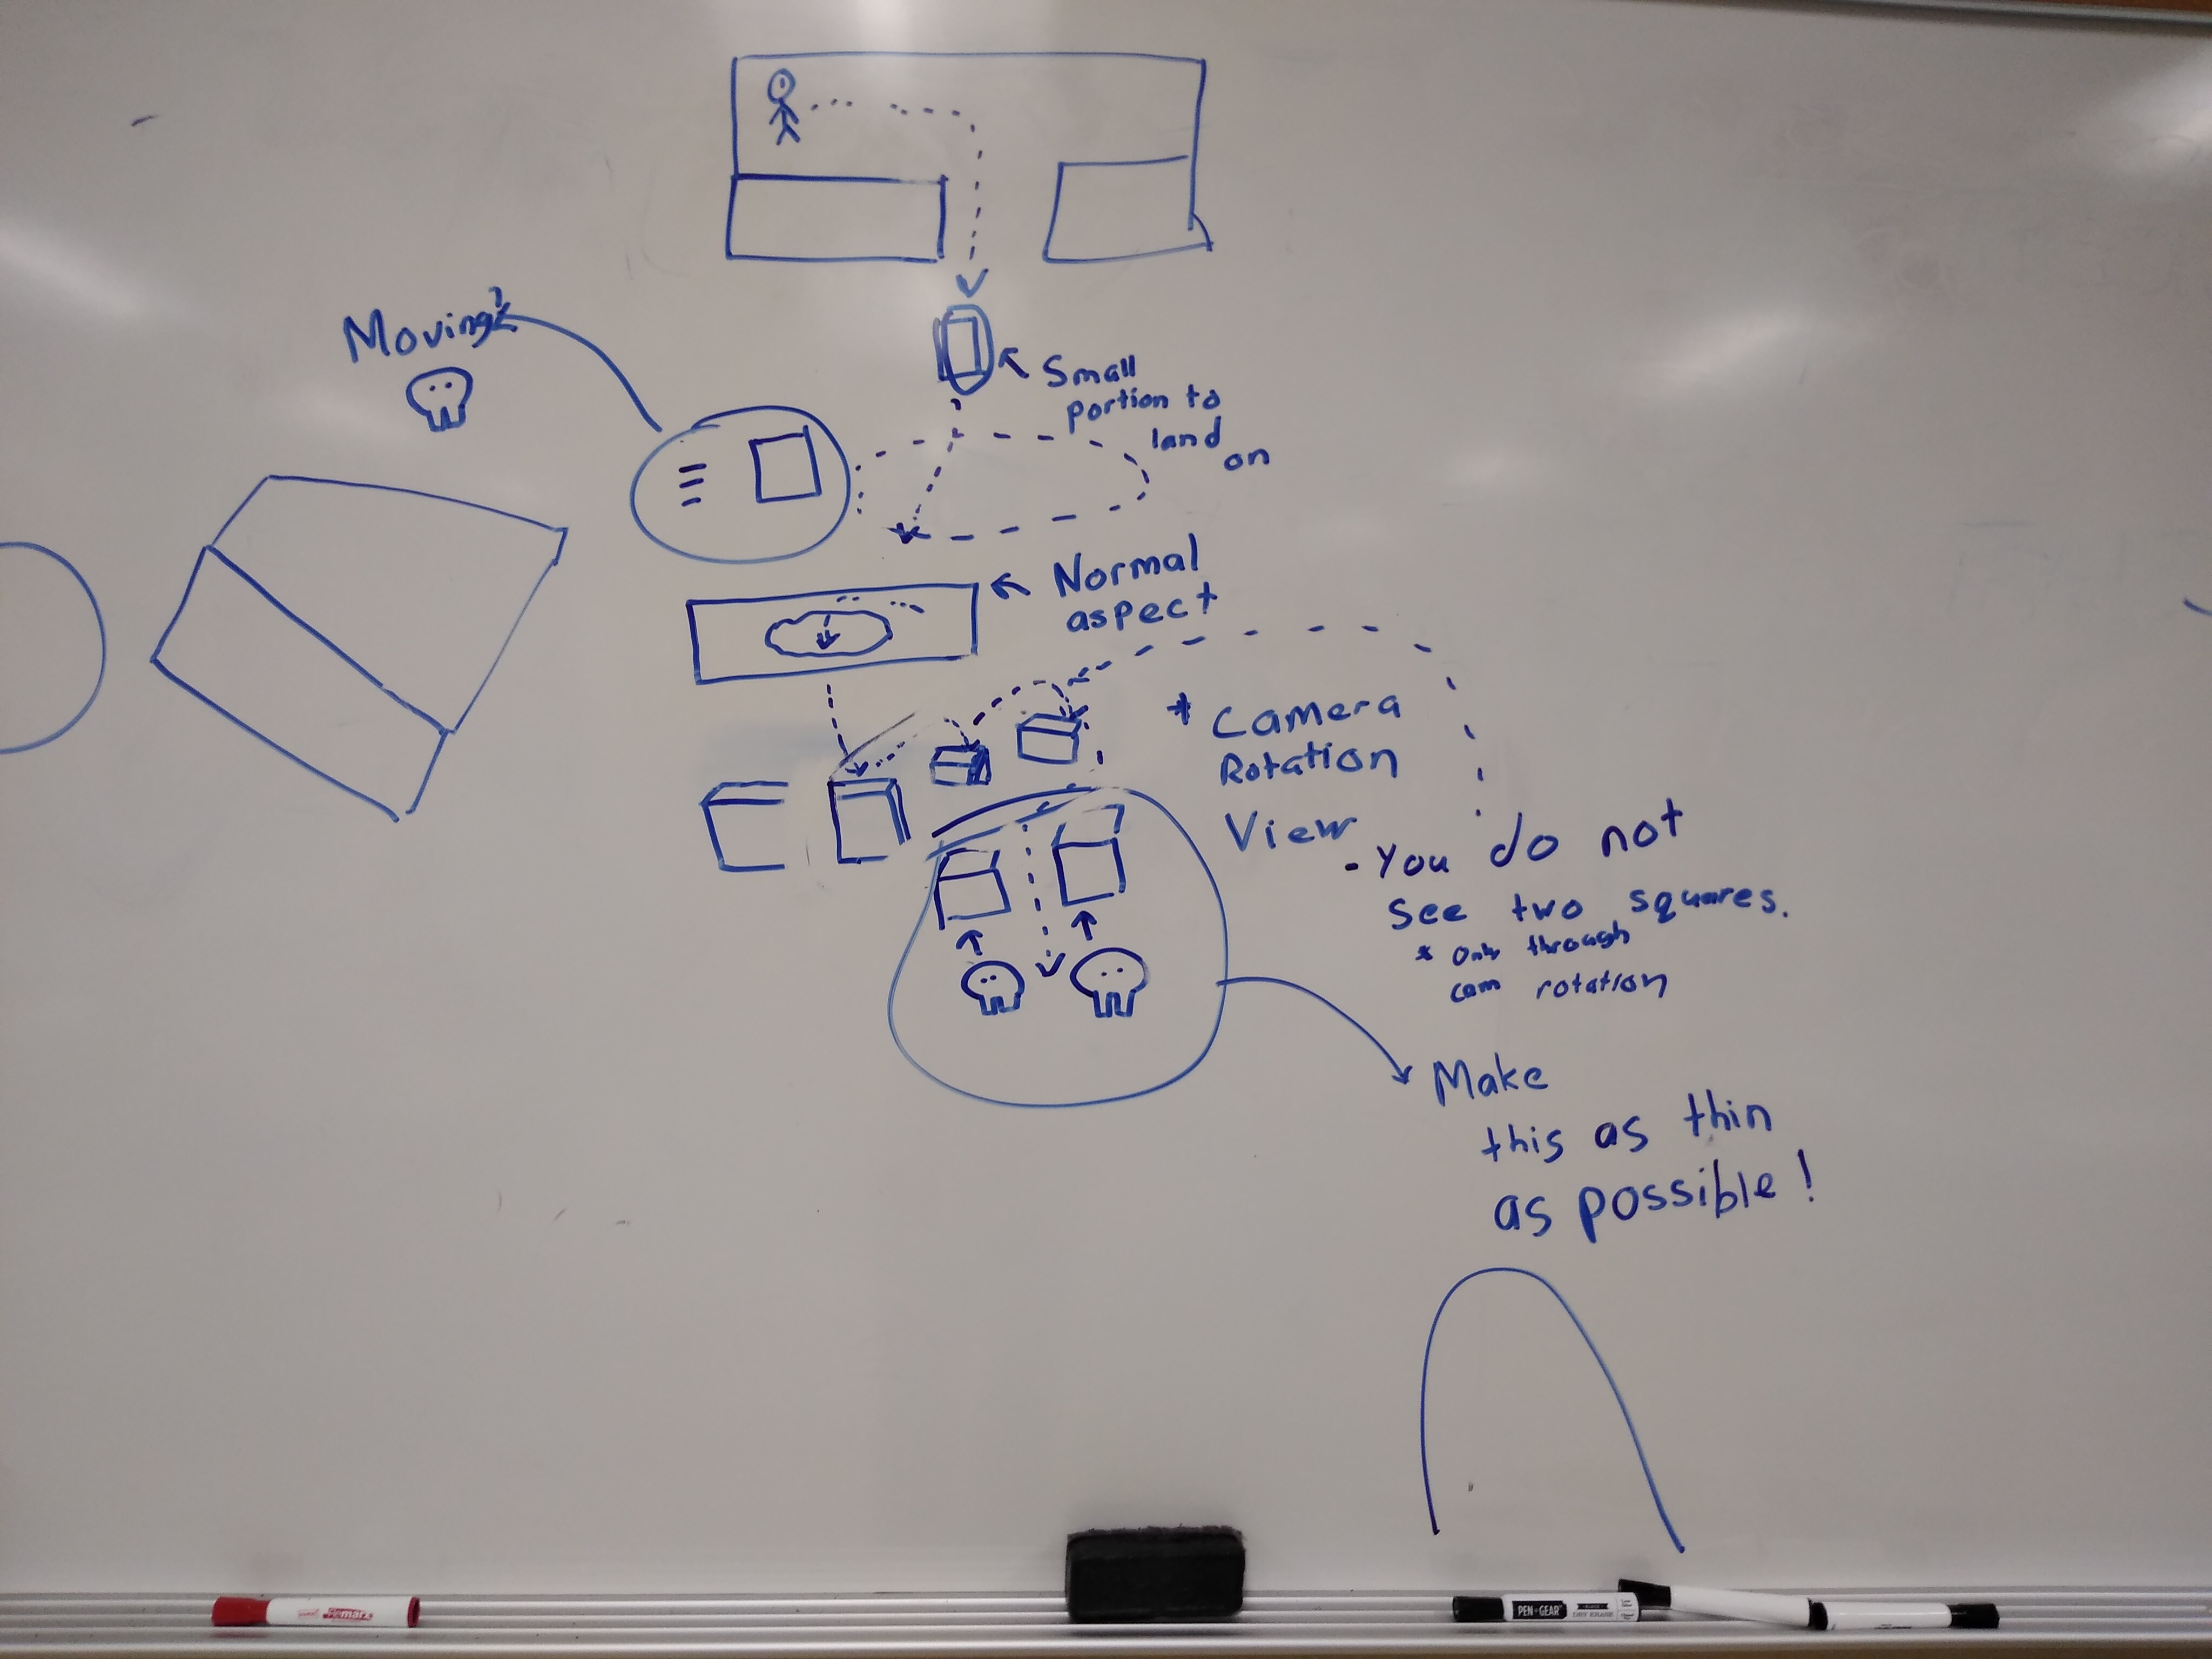 Moving?
Small
portion to
land
on
Normal
aspect
* Camera
Rotation
View
- You do not
see two squares.
* Only through
cam rotation
Make
this as thin
as possible!
PEN+GEAR
DRY ERASE